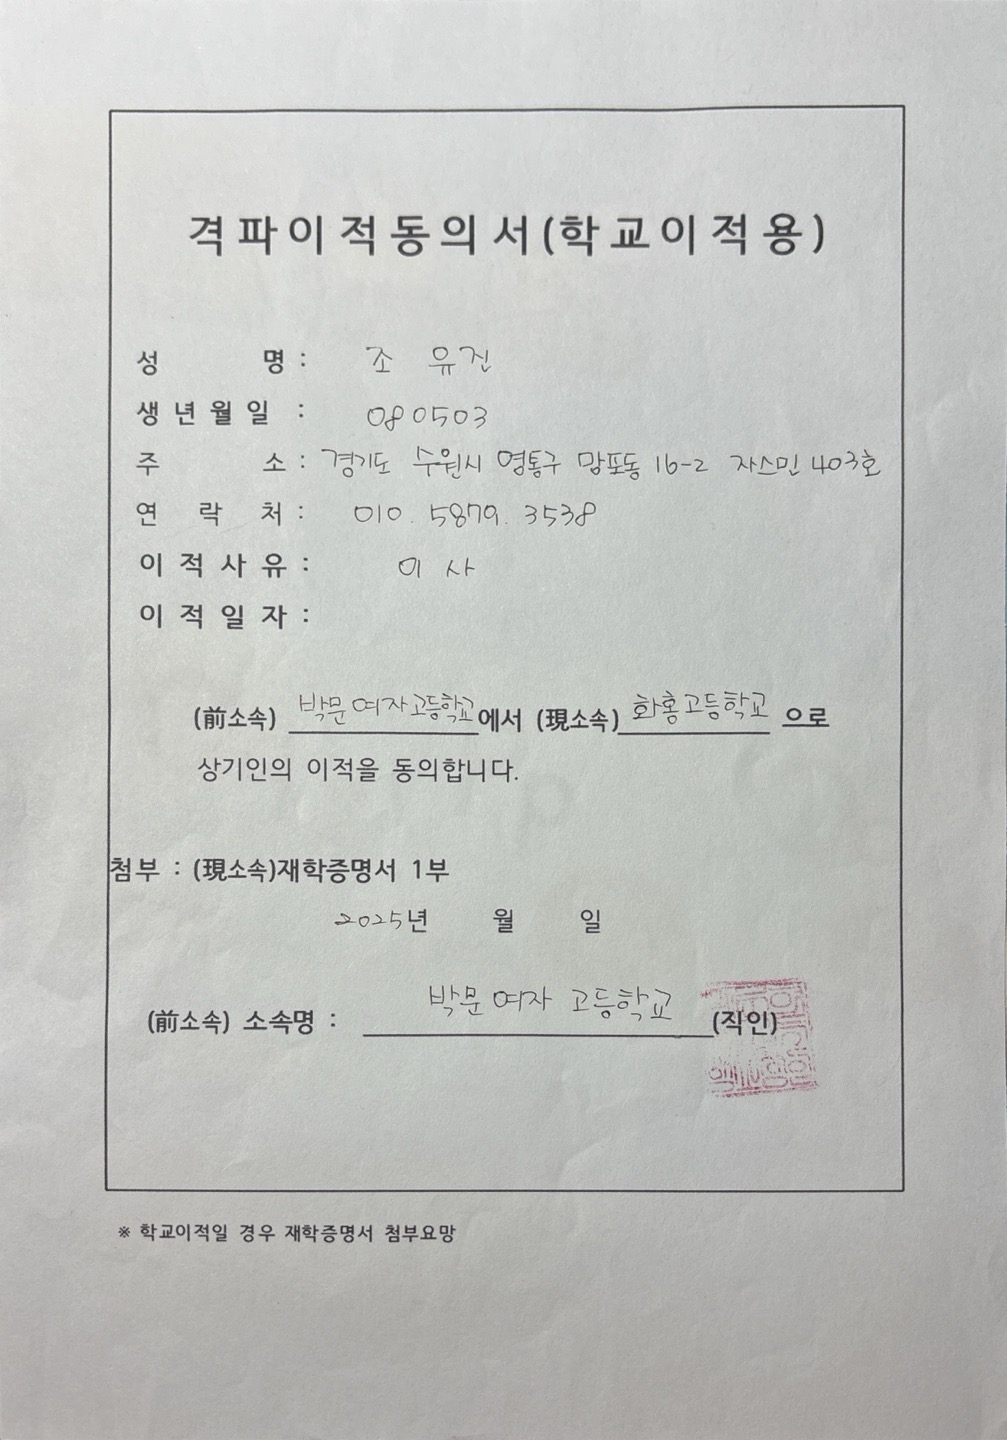 격파이적동의서(학교이적용)
성 명 : 조 유진
생년월일 : 080503
주 소 : 경기도 수원시 영통구 망포동 16-2 자스민 403호
연 락 처 : 010. 5879. 3538
이적사유 : 이 사
이적일자 :
(前소속) 박문여자고등학교에서 (現소속) 화홍고등학교 으로
상기인의 이적을 동의합니다.
첨부 : (現소속)재학증명서 1부
2025년 월 일
(前소속) 소속명 : 박문여자 고등학교 (직인)
※ 학교이적일 경우 재학증명서 첨부요망